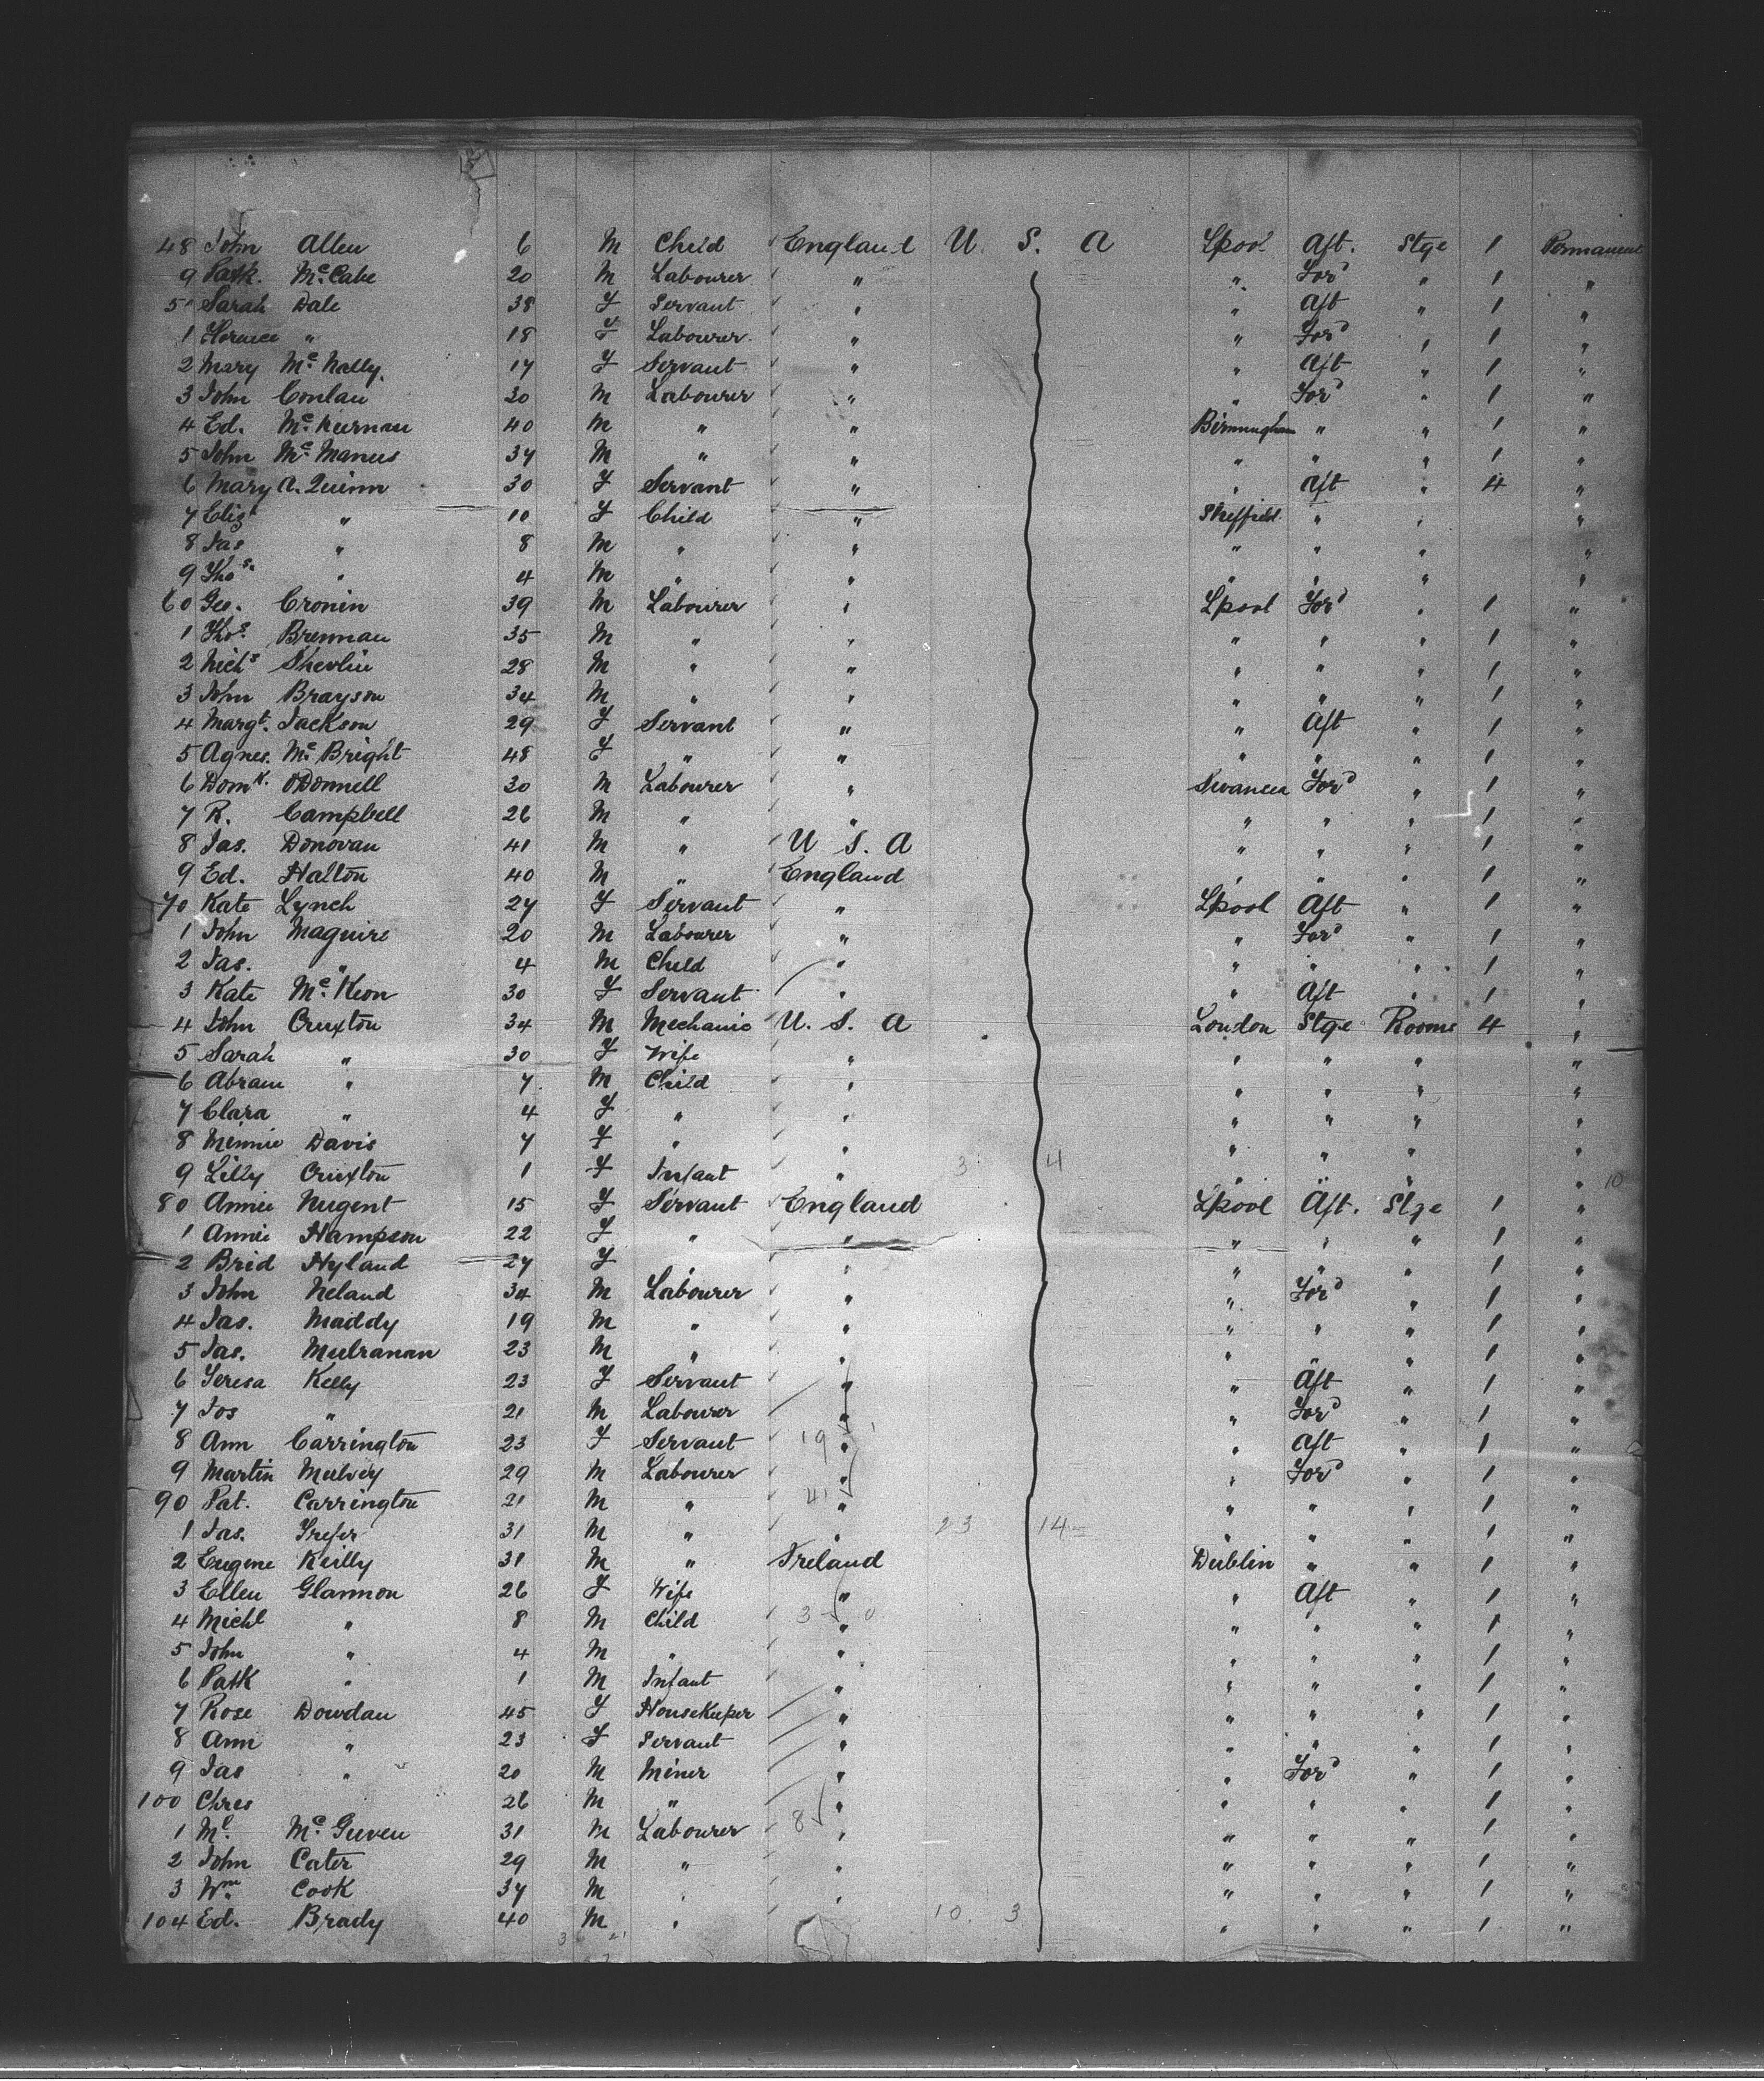 48 John Allen 6 M Child England U. S. A Lpool Aft. Stge 1 Permanent
9 Patk. Mc Cabe 20 M Labourer " " For'd " 1 "
50 Sarah Dale 38 F Servant " " Aft " 1 "
1 Florence " 18 F Labourer " " For'd " 1 "
2 Mary Mc Nally 17 F Servant " " Aft " 1 "
3 John Conlan 30 M Labourer " " For'd " 1 "
4 Ed. Mc Kiernan 40 M " " Birmingham " " 1 "
5 John Mc Manus 37 M " " " " " 1 "
6 Mary A. Quinn 30 F Servant " " Aft " 4 "
7 Eliz " 10 F Child " Sheffield " " "
8 Jas " 8 M " " " " " "
9 Thos. " 4 M " " " " " "
60 Geo. Cronin 39 M Labourer " Lpool For'd " 1 "
1 Thos. Brennan 35 M " " " " " 1 "
2 Nichs Shevlin 28 M " " " " " 1 "
3 John Brayson 34 M " " " " " 1 "
4 Margt. Jackson 29 F Servant " " Aft " 1 "
5 Agnes. Mc Bright 48 F " " " " " 1 "
6 Domk. O'Donnell 30 M Labourer " Swansea For'd " 1 "
7 R. Campbell 26 M " " " " " 1 "
8 Jas. Donovan 41 M " U S. A " " " 1 "
9 Ed. Halton 40 M " England " " " 1 "
70 Kate Lynch 27 F Servant " Lpool Aft " 1 "
1 John Maguire 20 M Labourer " " For'd " 1 "
2 Jas. " 4 M Child " " " " 1 "
3 Kate Mc Keon 30 F Servant " " Aft " 1 "
4 John Cruxton 34 M Mechanic U. S. A London Stge Rooms 4 "
5 Sarah " 30 F Wife " " " " "
6 Abram " 7 M Child " " " " "
7 Clara " 4 F " " " " " "
8 Minnie Davis 7 F " " " " " "
9 Lilly Cruxton 1 F Infant " 3 4 " " " " 10
80 Annie Nugent 15 F Servant England Lpool Aft. Stge 1 "
1 Annie Hampson 22 F " " " " " 1 "
2 Brid Hyland 27 F " " " " " 1 "
3 John Neland 34 M Labourer " " For'd " 1 "
4 Jas. Maddy 19 M " " " " " 1 "
5 Jas. Mulranan 23 M " " " " " 1 "
6 Teresa Kelly 23 F Servant " " Aft " 1 "
7 Jos " 21 M Labourer " " For'd " 1 "
8 Ann Carrington 23 F Servant 19 " " Aft " 1 "
9 Martin Mulvey 29 M Labourer " " For'd " 1 "
90 Pat. Carrington 21 M " 41 " " " " 1 "
1 Jas. 31 M " " 23 14 " " " 1 "
2 Eugene Reilly 31 M " Ireland Dublin " " 1 "
3 Ellen Glannon 26 F Wife " " Aft " 1 "
4 Michl " 8 M Child 3 " 0 " " " 1 "
5 John " 4 M " " " " " 1 "
6 Patk " 1 M Infant " " " " 1 "
7 Rose Dowdan 45 F HouseKeeper " " " " 1 "
8 Ann " 23 F Servant " " " " 1 "
9 Jas " 20 M Miner " " For'd " 1 "
100 Chres 26 M " " " " " 1 "
1 Ml. Mc Guven 31 M Labourer 8 " " " " 1 "
2 John Cater 29 M " " " " " 1 "
3 Wm. Cook 37 M " " " " " 1 "
104 Ed. Brady 40 M " 10. 3 " " " 1 "